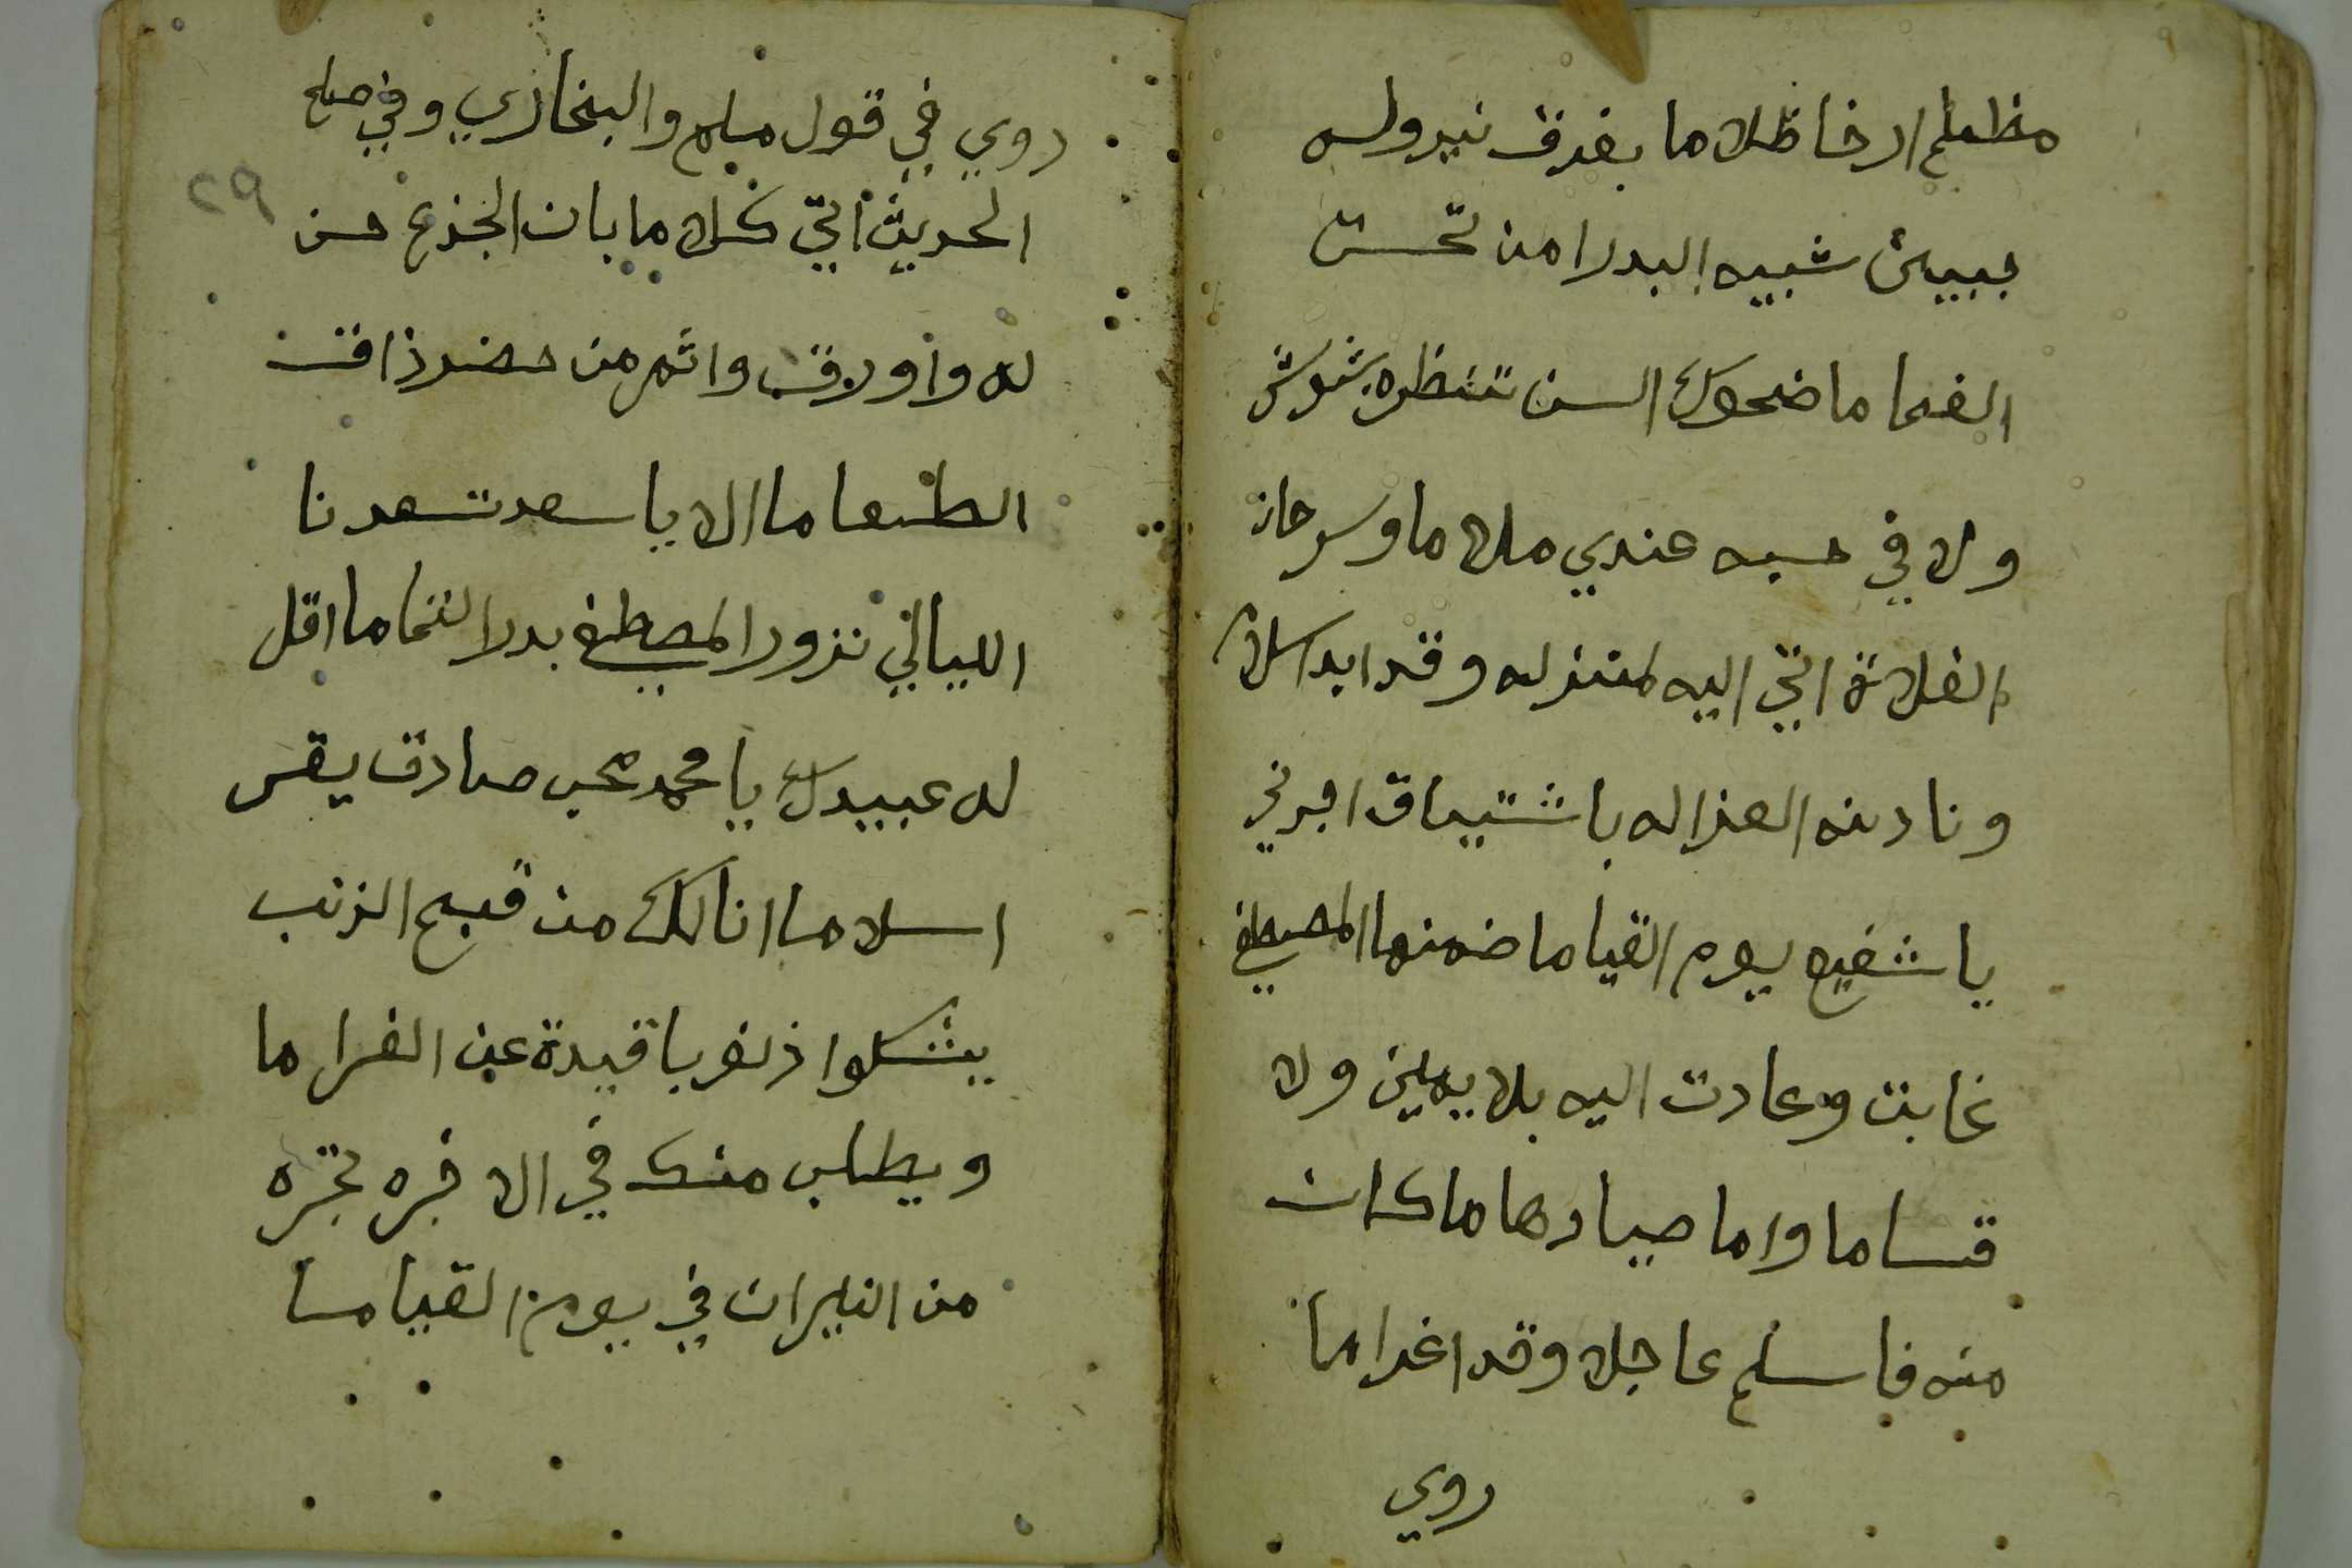 مظلم ارخا ظلاما بفرق نير وله
جبين شبيه البدرا من تحت
الغما ما ضحوك السن تنظره بشوش
ولا في حسبه عندي ملاما وسرحان
الفلاة اتى اليه لمنزله وقد ابد اسلاما
ونادته الغزاله باشتياق اجرني
يا شفيع يوم القياما ضمنها المصطفى
غابت وعادت اليه بلا يمين ولا
قساما واما صيادها ما كان
منه فاسلم عاجلا وقد اغراما
روي
روي في قول مسلم والبخاري وفي صلح
٢٩
الحديث اتى كلاما بان الجذع حن
له واورق واثمر من حضر ذاق
الطعاما الا يا سعد تسعدنا
الليالي نزور المصطفى بدر التماما اقل
له عبيدك يا محمد محب صادق يقر
اسلاما انالك من قبيح الذنب
يشكوا ذنوبا قيدة عن الغراما
ويطلب منك في الاخره تجره
من النيران في يوم القياما